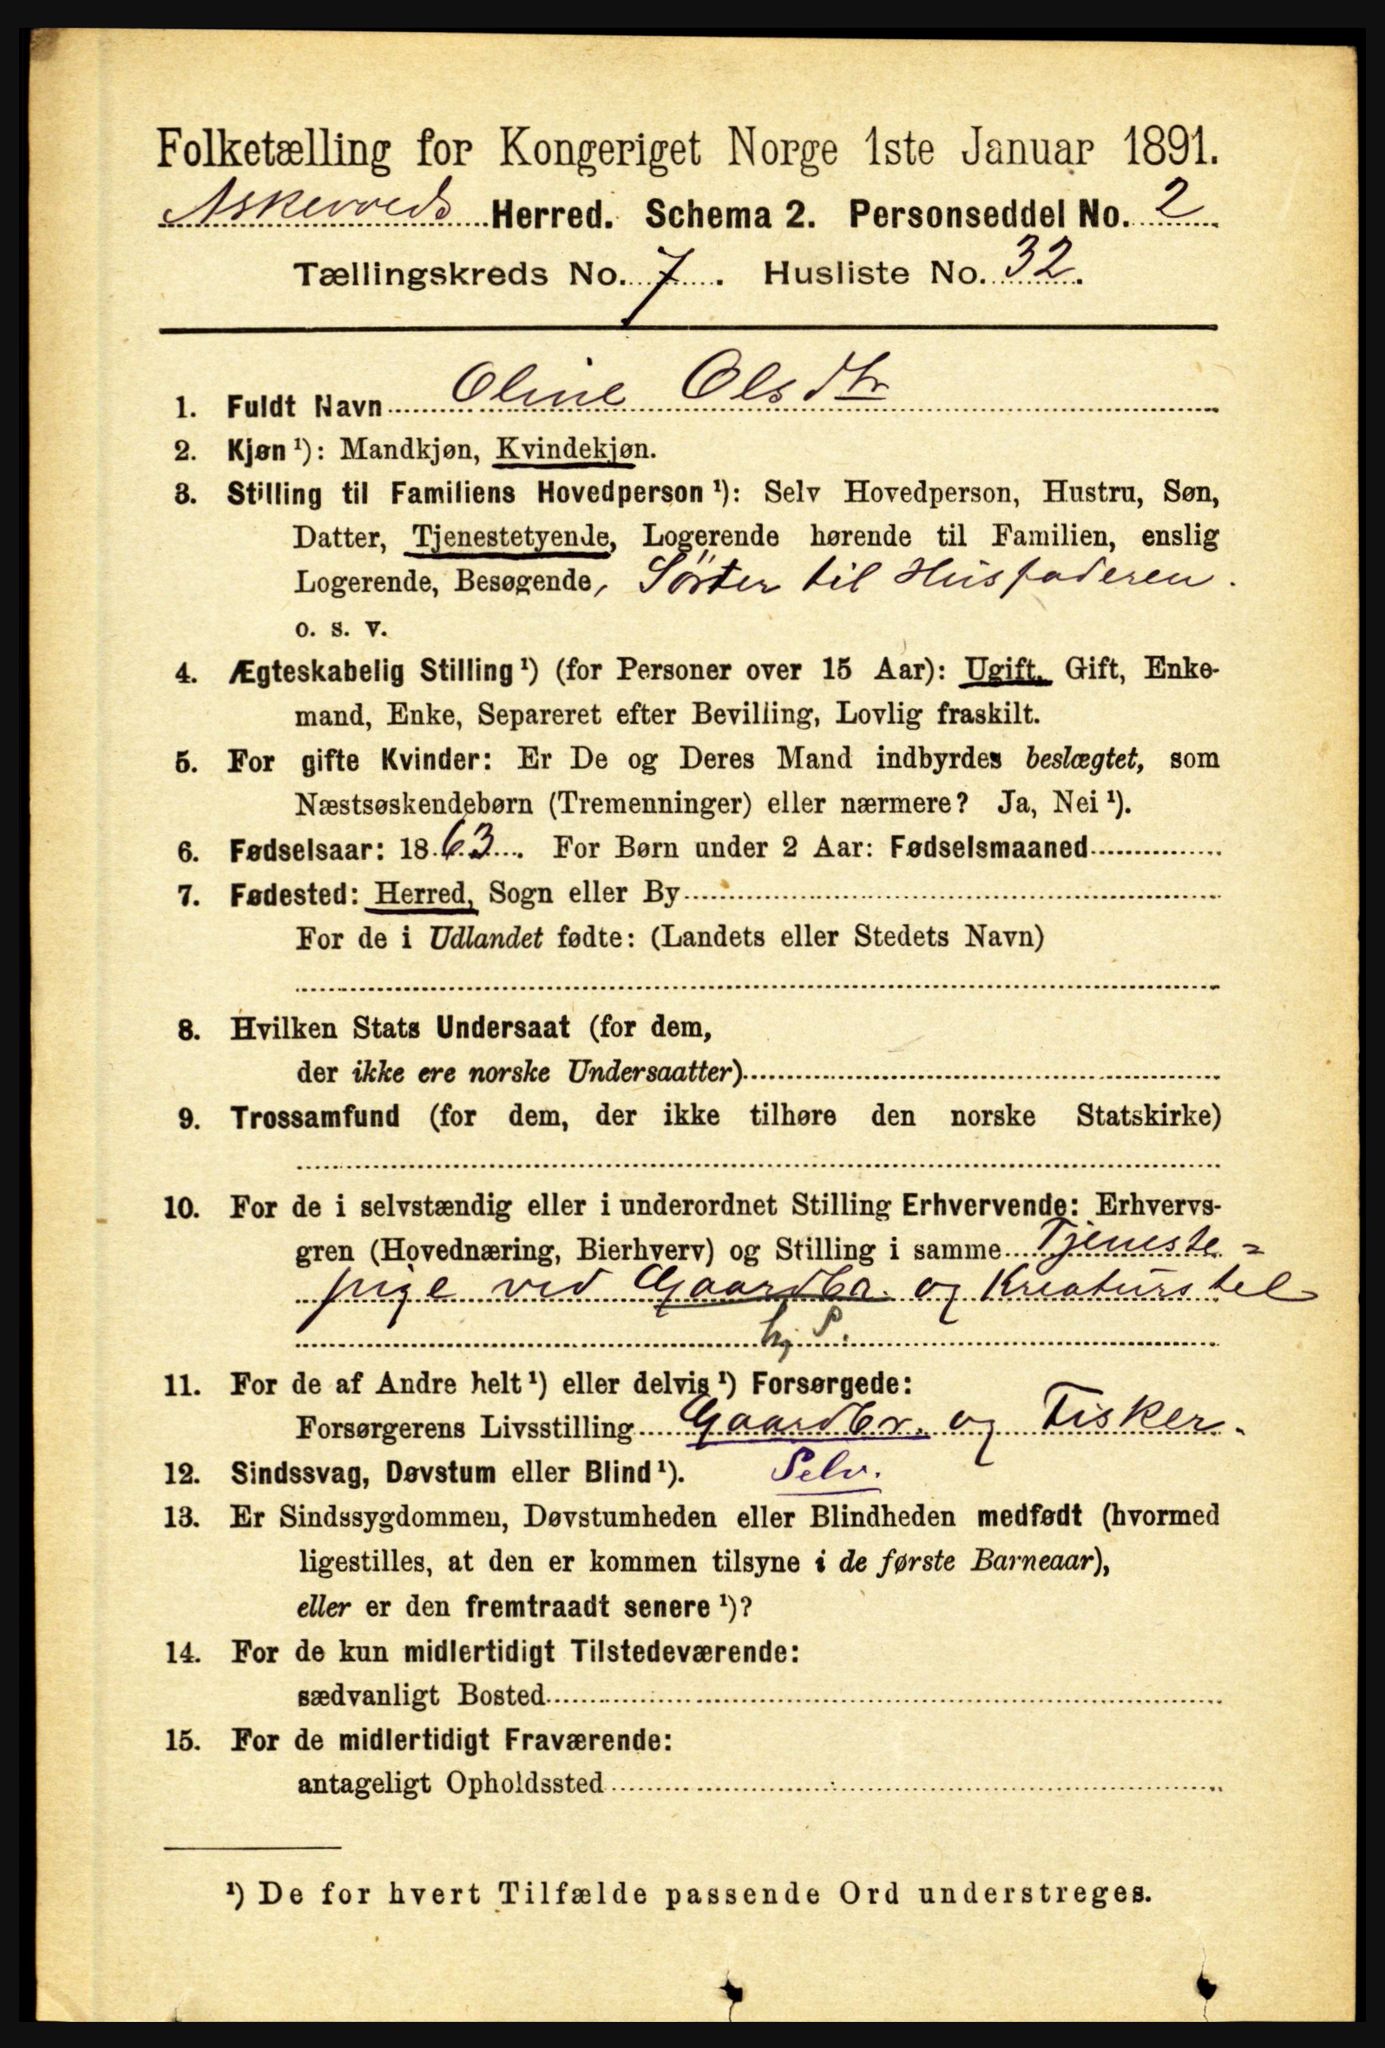 Folketælling for Kongeriget Norge 1ste Januar 1891.
Askevolds Herred. Schema 2. Personseddel No. 2
Tællingskreds No. 7. Husliste No. 32.
1. Fuldt Navn Oline Olsdtr
2. Kjøn ¹): Mandkjøn, Kvindekjøn.
3. Stilling til Familiens Hovedperson ¹): Selv Hovedperson, Hustru, Søn,
Datter, Tjenestetyende, Logerende hørende til Familien, enslig
Logerende, Besøgende, Søster til Husfaderen.
o. s. v.
4. Ægteskabelig Stilling ¹) (for Personer over 15 Aar): Ugift, Gift, Enke-
mand, Enke, Separeret efter Bevilling, Lovlig fraskilt.
5. For gifte Kvinder: Er De og Deres Mand indbyrdes beslægtet, som
Næstsøskendebørn (Tremenninger) eller nærmere? Ja, Nei ¹).
6. Fødselsaar: 1863. For Børn under 2 Aar: Fødselsmaaned
7. Fødested: Herred, Sogn eller By
For de i Udlandet fødte: (Landets eller Stedets Navn)
8. Hvilken Stats Undersaat (for dem,
der ikke ere norske Undersaatter)
9. Trossamfund (for dem, der ikke tilhøre den norske Statskirke)
10. For de i selvstændig eller i underordnet Stilling Erhvervende: Erhvervs-
gren (Hovednæring, Bierhverv) og Stilling i samme Tjeneste=
pige ved Gaardbr. og Kreaturstel
11. For de af Andre helt ¹) eller delvis ¹) Forsørgede:
Forsørgerens Livsstilling Gaardbr. og Fisker.
12. Sindssvag, Døvstum eller Blind ¹). Selv.
13. Er Sindssygdommen, Døvstumheden eller Blindheden medfødt (hvormed
ligestilles, at den er kommen tilsyne i de første Barneaar),
eller er den fremtraadt senere ¹)?
14. For de kun midlertidigt Tilstedeværende:
sædvanligt Bosted
15. For de midlertidigt Fraværende:
antageligt Opholdssted
¹) De for hvert Tilfælde passende Ord understreges.